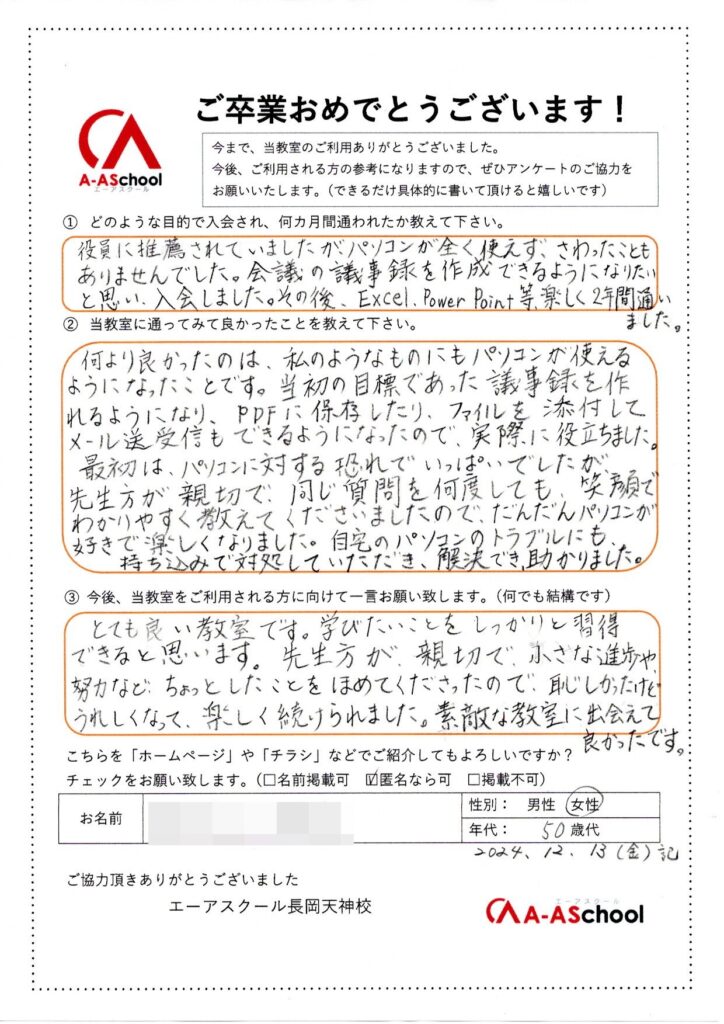 ご卒業おめでとうございます！
A-ASchool
エーアスクール
今まで、当教室のご利用ありがとうございました。
今後、ご利用される方の参考になりますので、ぜひアンケートのご協力を
お願いいたします。（できるだけ具体的に書いて頂けると嬉しいです）
① どのような目的で入会され、何カ月間通われたか教えて下さい。
役員に推薦されていましたがパソコンが全く使えず、さわったことも
ありませんでした。会議の議事録を作成できるようになりたい
と思い、入会しました。その後、Excel、Power Point等、楽しく2年間通い
ました。
② 当教室に通ってみて良かったことを教えて下さい。
何より良かったのは、私のようなものにもパソコンが使える
ようになったことです。当初の目標であった議事録を作
れるようになり、PDFに保存したり、ファイルを添付して
メール送受信もできるようになったので、実際に役立ちました。
最初は、パソコンに対する恐れでいっぱいでしたが、
先生方が親切で、同じ質問を何度しても、笑顔で
わかりやすく教えてくださいましたので、だんだんパソコンが
好きで楽しくなりました。自宅のパソコンのトラブルにも、
持ち込みで対処していただき、解決でき、助かりました。
③ 今後、当教室をご利用される方に向けて一言お願い致します。（何でも結構です）
とても良い教室です。学びたいことをしっかりと習得
できると思います。先生方が、親切で、小さな進歩や、
努力など、ちょっとしたことをほめてくださったので、恥しかったけど
うれしくなって、楽しく続けられました。素敵な教室に出会えて
良かったです。
こちらを「ホームページ」や「チラシ」などでご紹介してもよろしいですか？
チェックをお願い致します。（□名前掲載可 ☑匿名なら可 □掲載不可）
お名前
性別： 男性 女性
年代： 50歳代
2024. 12. 13（金）記
ご協力頂きありがとうございました
エーアスクール長岡天神校
エーアスクール
A-ASchool